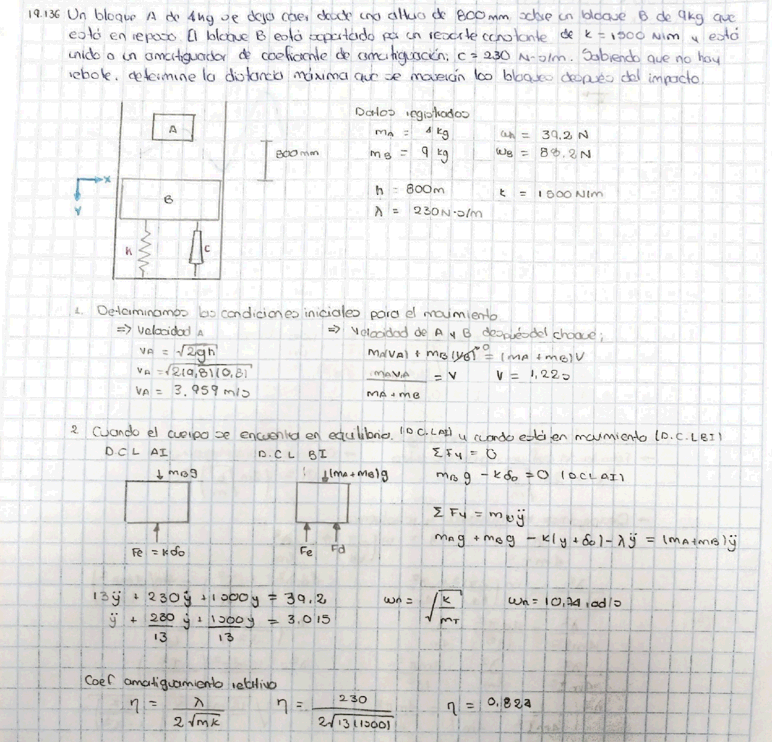 19.136 Un bloque A de 4kg se deja caer desde una altura de 800mm sobre un bloque B de 9kg que
está en reposo. El bloque B está soportado por un resorte constante de k = 1500 N/m y está
unido a un amortiguador de coeficiente de amortiguación; c = 230 N·s/m. Sabiendo que no hay
rebote, determine la distancia máxima que se moverán los bloques después del impacto.
Datos registrados
mA = 4 kg
ωA = 39.2 N
mB = 9 kg
ωB = 88.2N
h = 800m
k = 1500 N/m
λ = 230N·s/m
A
800mm
x
y
B
k
c
1. Determinamos las condiciones iniciales para el movimiento
⇒ Velocidad A
⇒ Velocidad de A y B después del choque;
VA = √2gh
mA(VA) + mB(VB)⁰ = (mA + mB)V
VA = √2(9,81)(0,8)
mAVA / mA + mB = V
V = 1,22
VA = 3.959 m/s
2. Cuando el cuerpo se encuentra en equilibrio. (D.C.L AI) y cuando está en movimiento (D.C.L BI)
D C L AI
D.C.L BI
ΣFy = 0
↓mBg
↓(mA+mB)g
mBg - kδo = 0 (DCL AI)
ΣFy = mÿ
mAg + mBg - k(y + δo) - λÿ = (mA+mB)ÿ
Fe = kδo
Fe
Fd
13ÿ + 230ẏ + 1500y = 39.2
ωn = √k/mT
ωn = 10,74 rad/s
ÿ + 230/13 ẏ + 1500/13 y = 3.015
Coef amortiguamiento relativo
η = λ / 2√mk
η = 230 / 2√13(1500)
η = 0,823